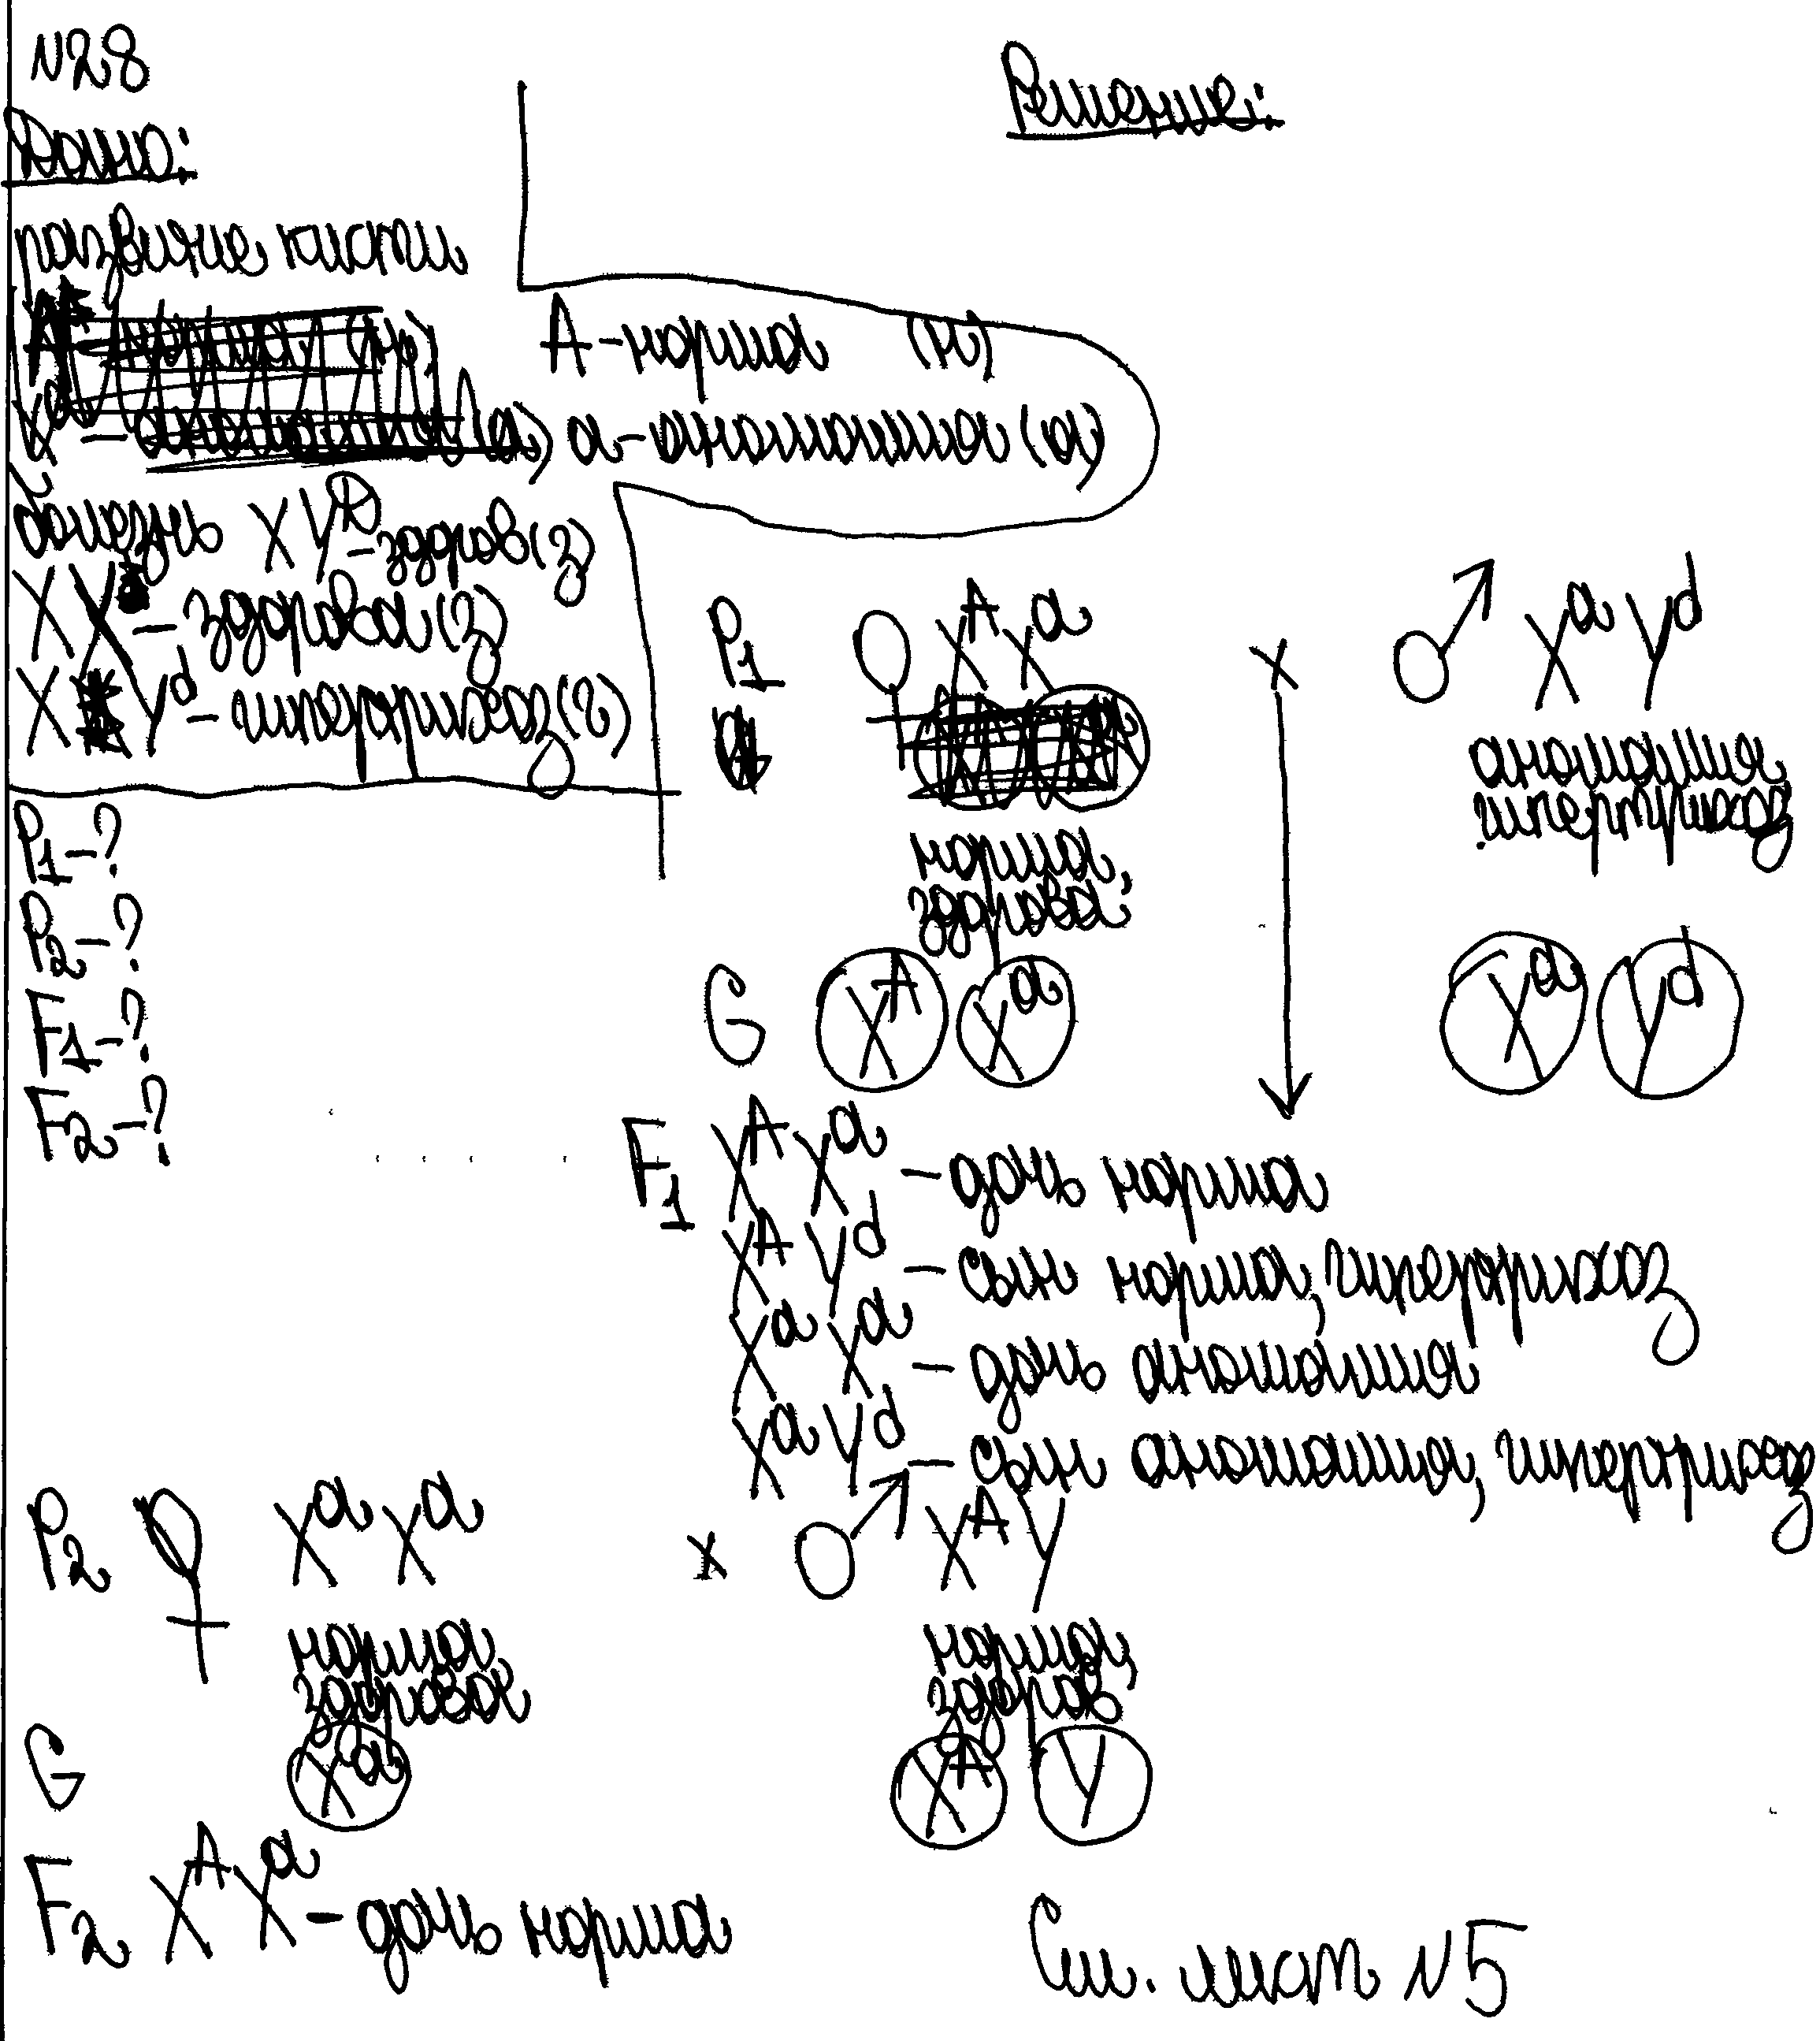 N28
Дано:
Решение:
развитие кисти
A - норма (н)
a - аномалия (а)
болезнь XYᴰ - здоров (з)
XX - здорова (з)
XYᵈ - гипертрихоз (г)
P₁ - ?
P₂ - ?
F₁ - ?
F₂ - ?
P₁ ♀ XᴬXᵃ x ♂ XᵃYᵈ
норма, здорова
аномалия, гипертрихоз
G Xᴬ Xᵃ Xᵃ Yᵈ
F₁ XᴬXᵃ - дочь норма
XᴬYᵈ - сын норма, гипертрихоз
XᵃXᵃ - дочь аномалия
XᵃYᵈ - сын аномалия, гипертрихоз
P₂ ♀ XᵃXᵃ x ♂ XᴬY
норма, здорова
норма, здоров
G Xᵃ Xᴬ Y
F₂ XᴬXᵃ - дочь норма
См. лист N5